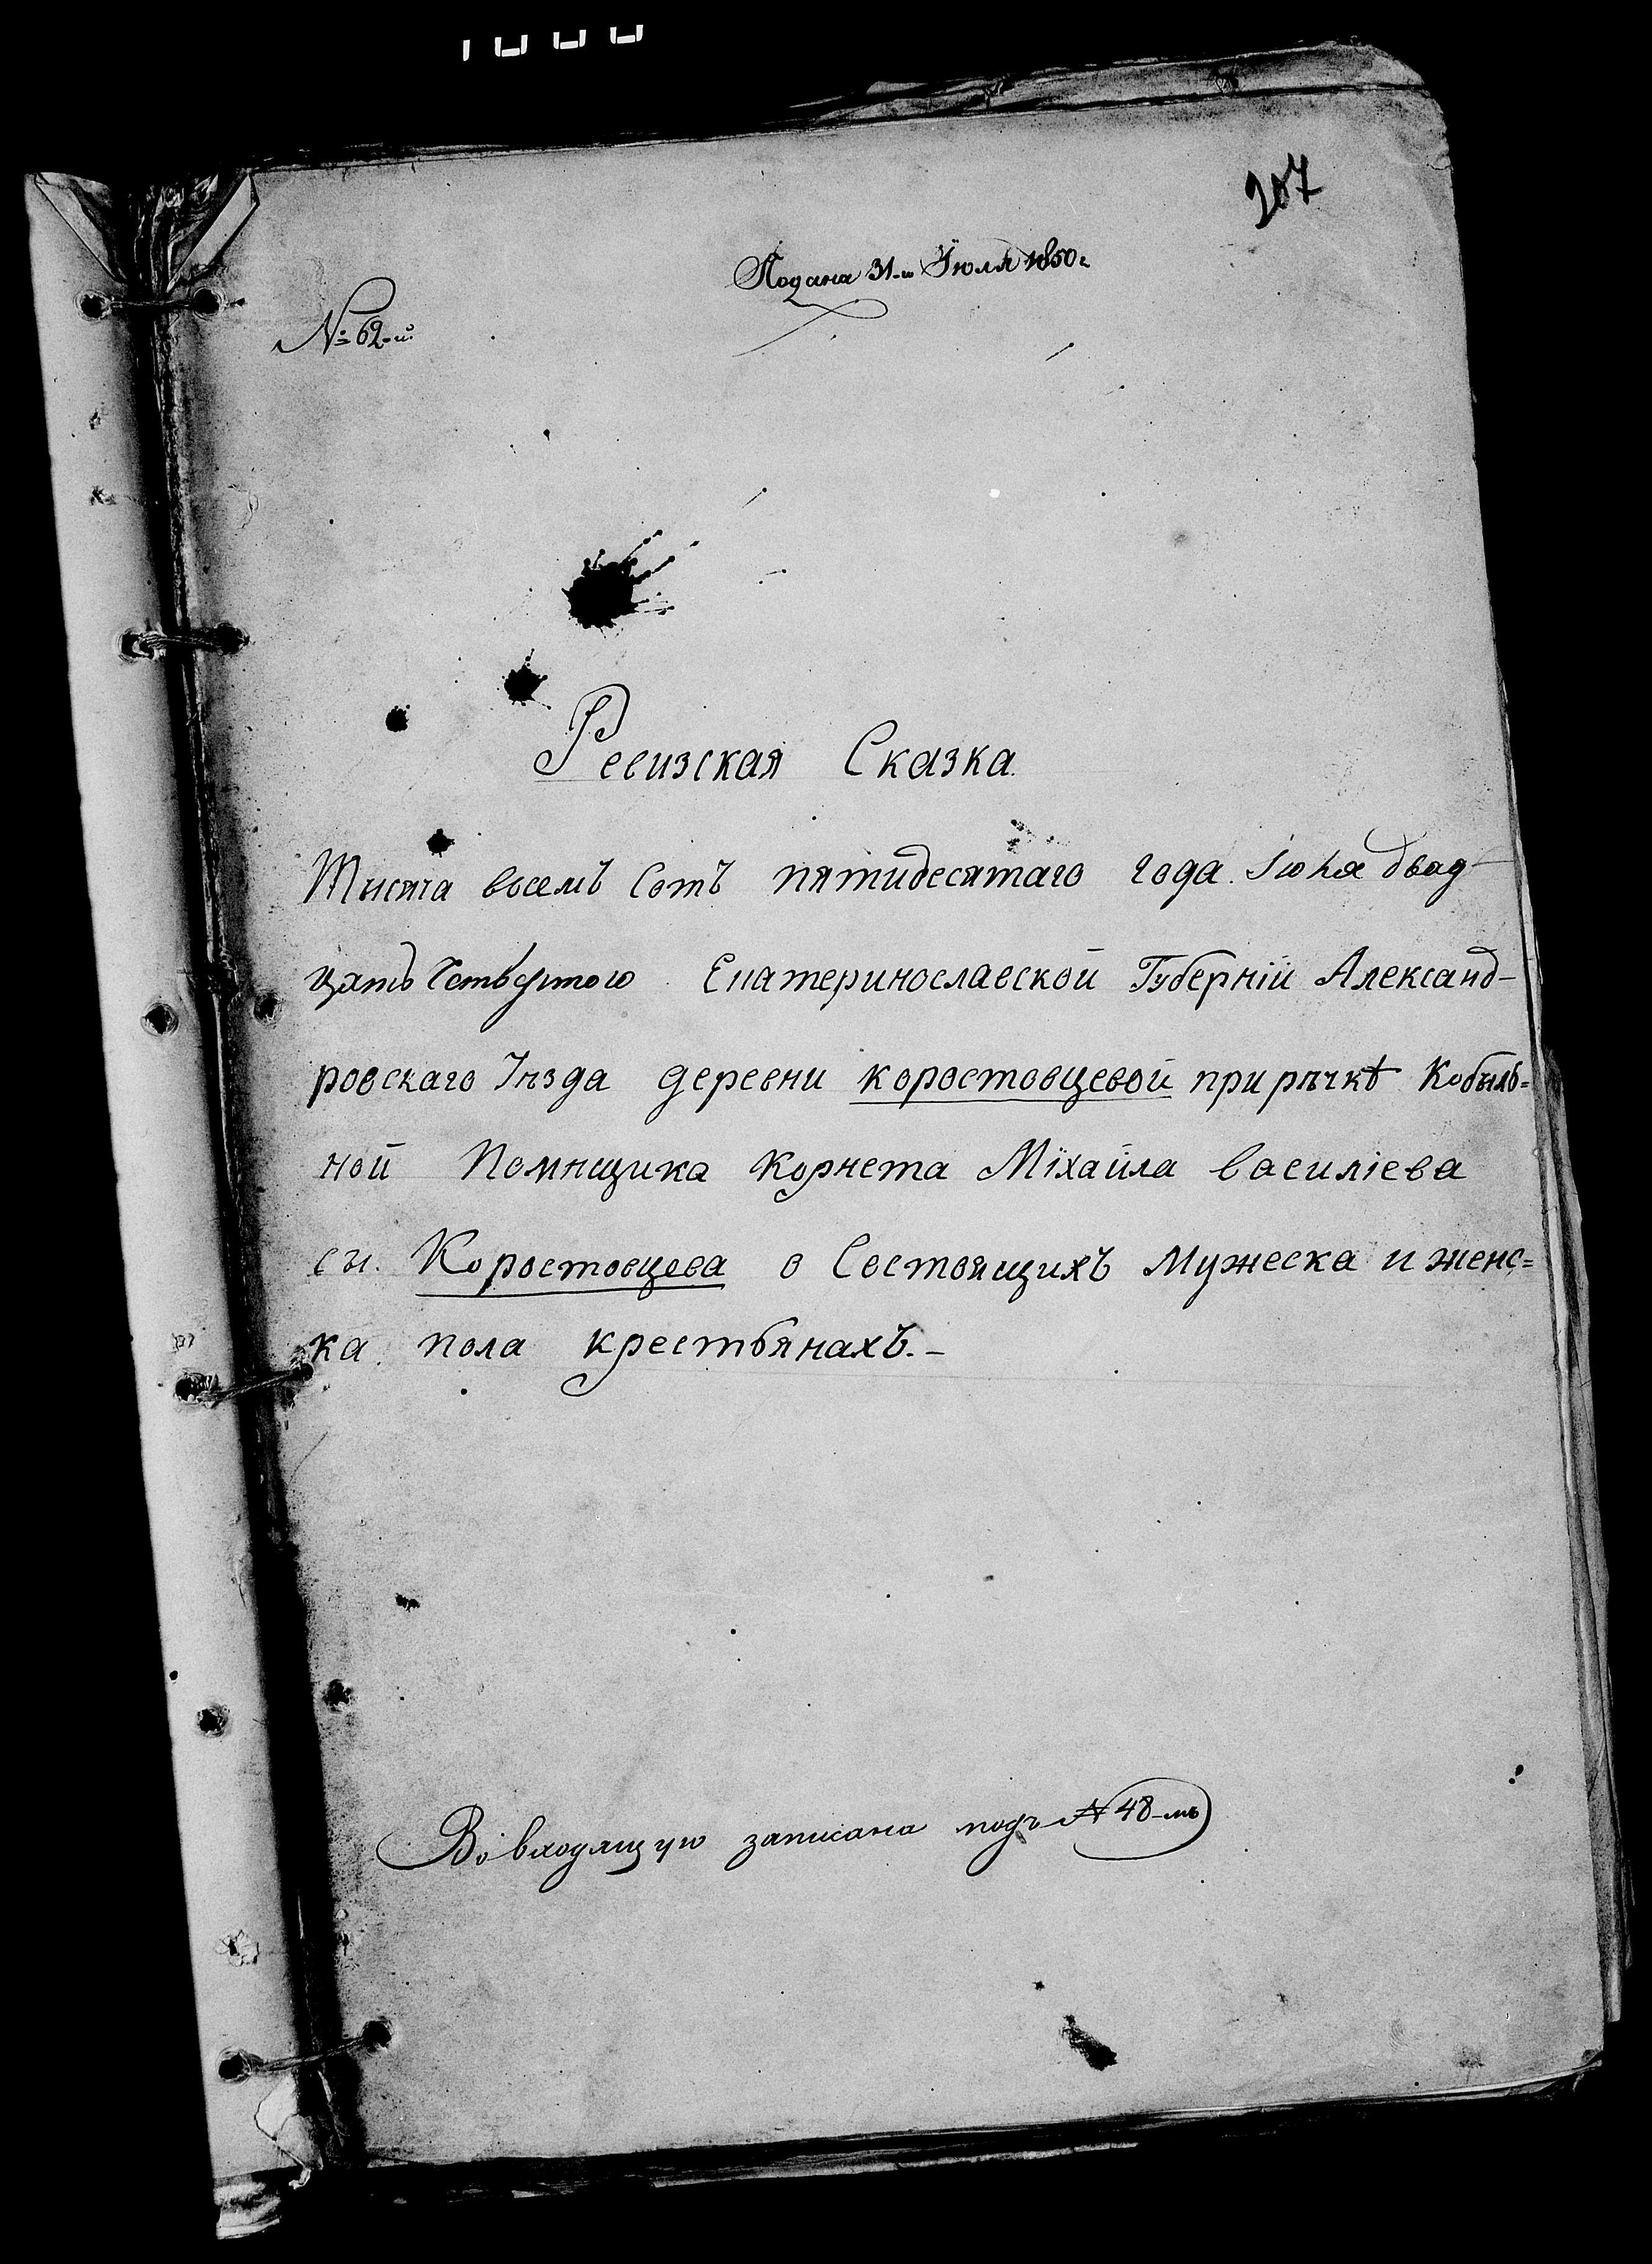 207
Подана 31-го Июля 1850 г.
№ 62-й
Ревизская Сказка.
Тысяча восемъ Сотъ пятидесятаго года. Іюля двад-
цать Четвертого Екатеринославской Губерніи Александ-
ровскаго Уѣзда деревни коростовцевой при рѣчкѣ Кобыль=
ной Помѣщика Корнета Міхайла василіева
сы. Коростовцева о Состоящихъ мужеска и женс=
ка пола крестьянахъ.-
Во входящую записана подъ № 48-мъ